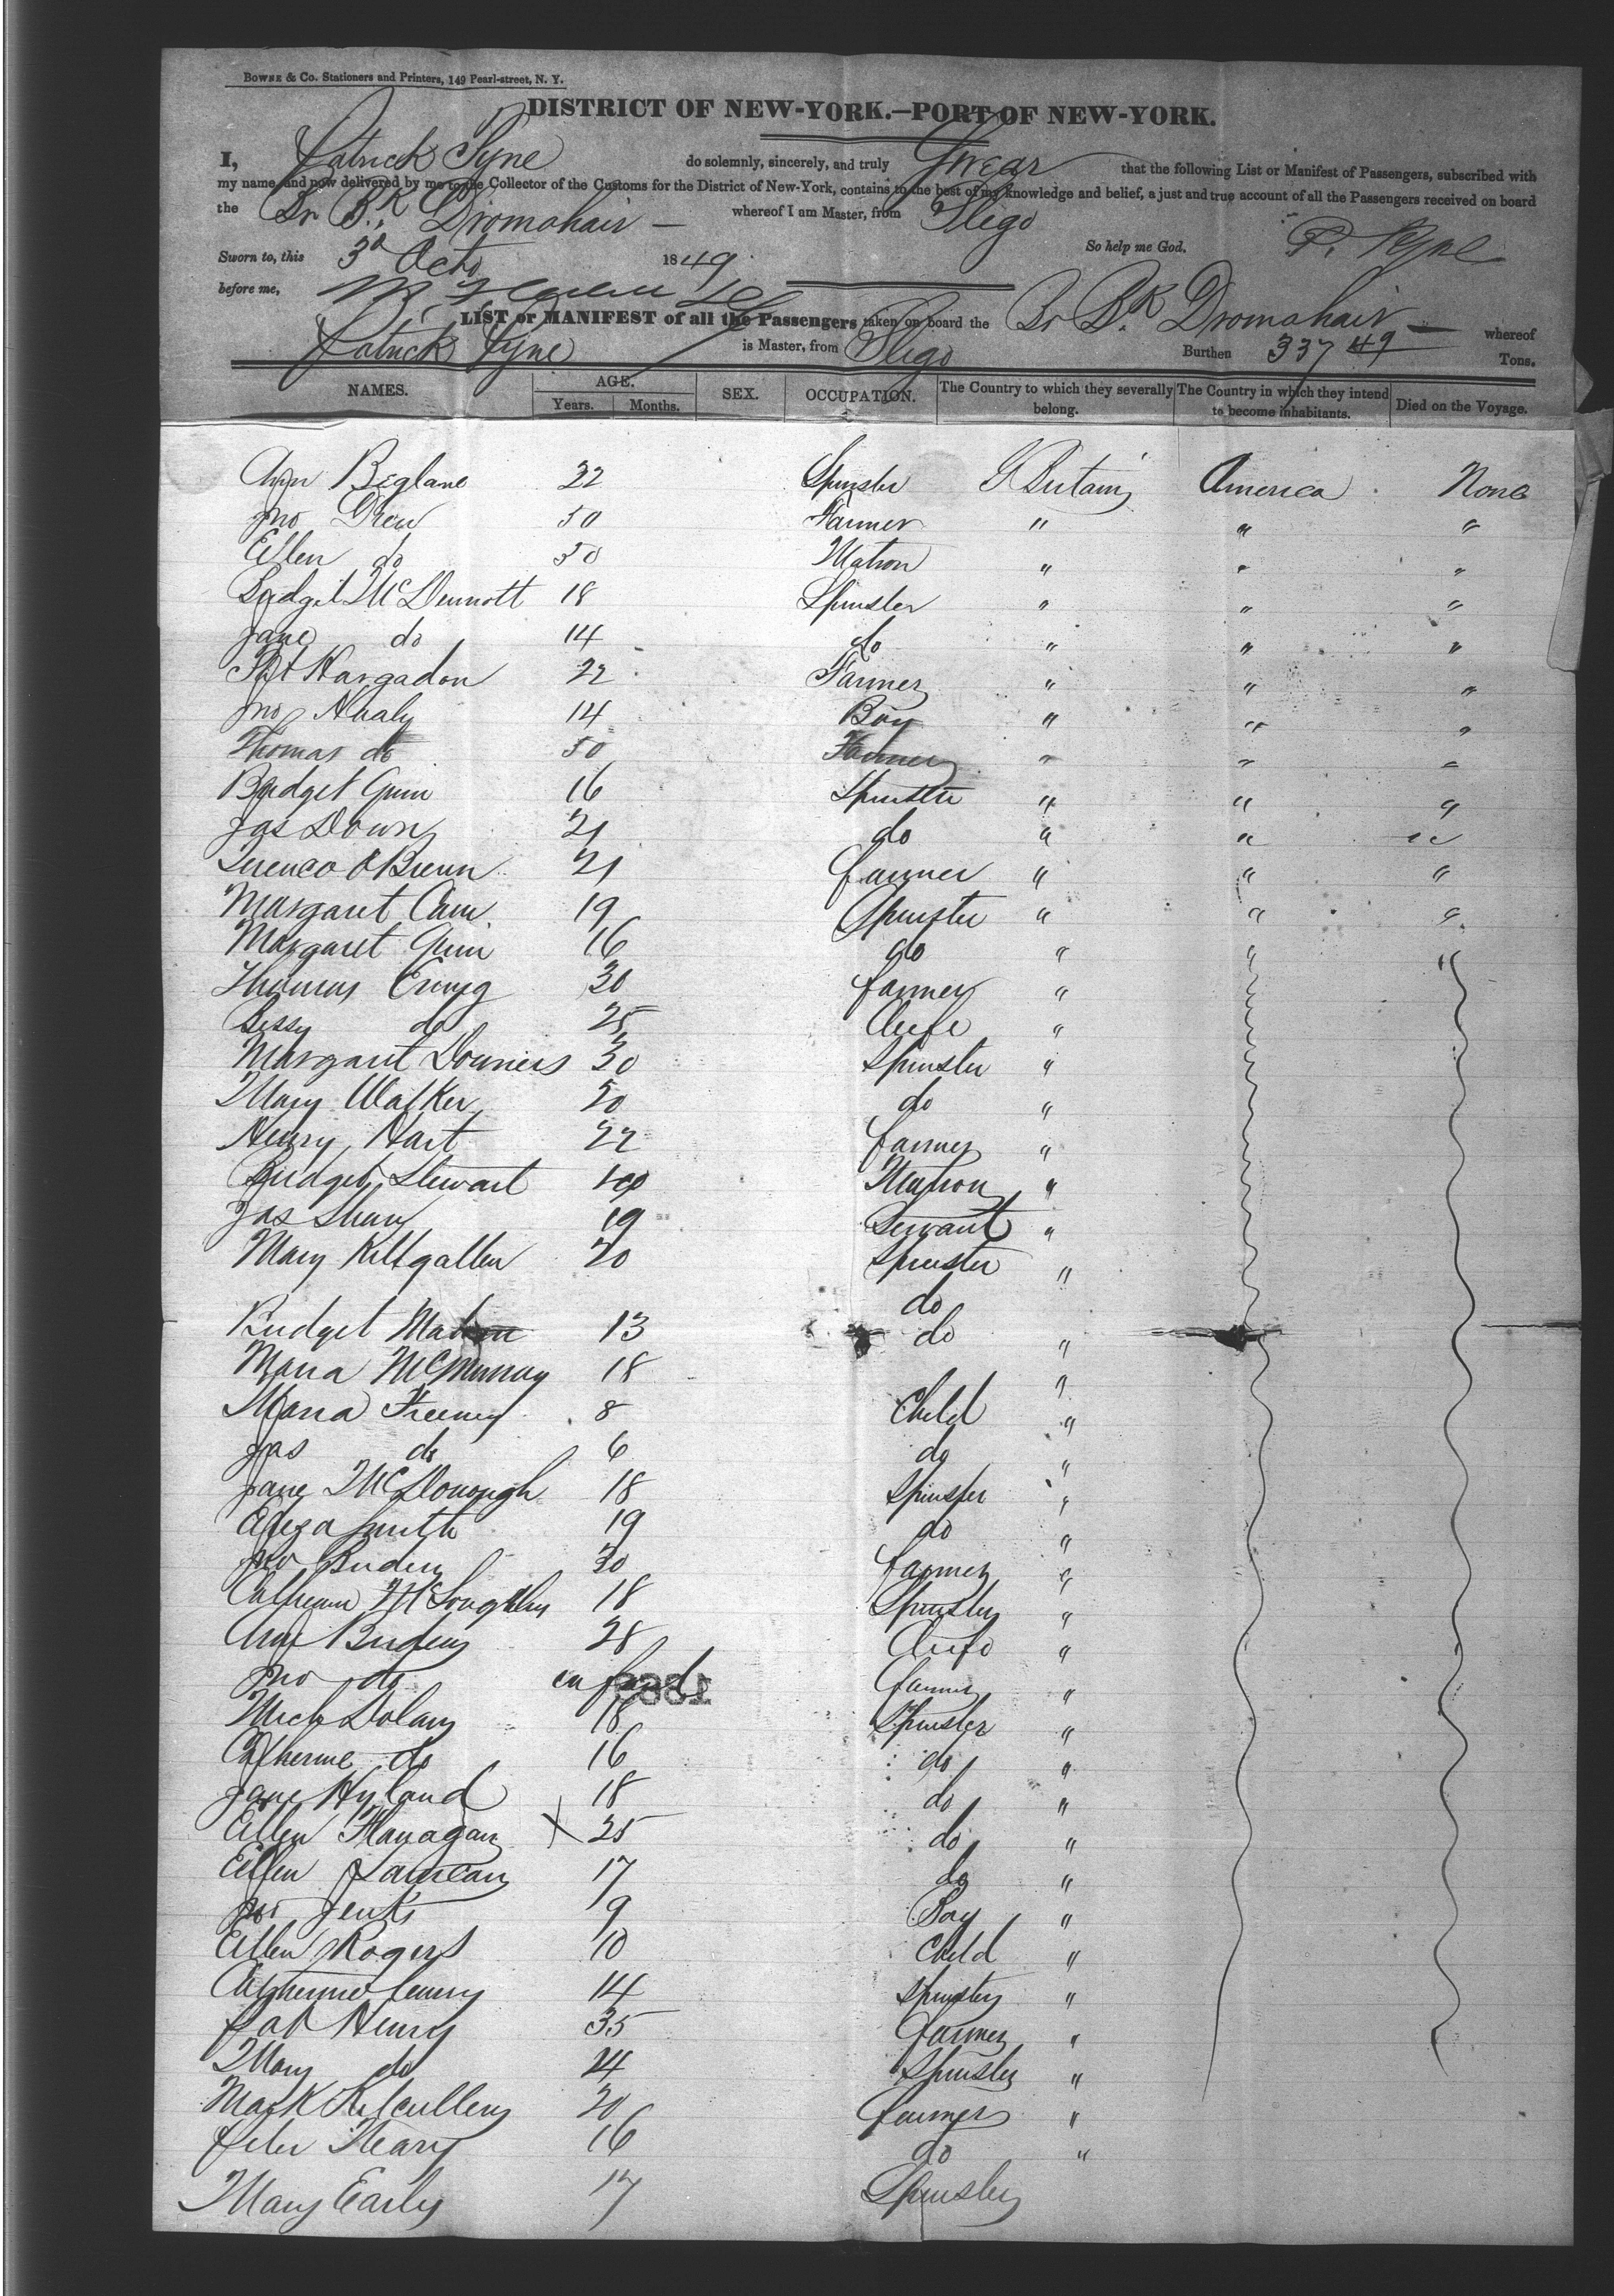 BOWNE & Co. Stationers and Printers, 149 Pearl-street, N. Y.
DISTRICT OF NEW-YORK.—PORT OF NEW-YORK.
I, Patrick Pyne do solemnly, sincerely, and truly Swear that the following List or Manifest of Passengers, subscribed with
my name, and now delivered by me to the Collector of the Customs for the District of New-York, contains to the best of my knowledge and belief, a just and true account of all the Passengers received on board
the Br Bk Dromahair — whereof I am Master, from Sligo
Sworn to, this 3d Octo 1849 So help me God. P. Pyne
before me,
LIST or MANIFEST of all the Passengers taken on board the Br Bk Dromahair — whereof
Patrick Pyne is Master, from Sligo Burthen 337 49 Tons.
NAMES. AGE. SEX. OCCUPATION. The Country to which they severally belong. The Country in which they intend to become inhabitants. Died on the Voyage.
Years. Months.
Ann Biglane 22 Spinster G Britain America None
Jno Drew 50 Farmer " " "
Ellen do 50 Matron " " "
Bridget McDermott 18 Spinster " " "
Jane do 14 do " " "
Pat Hargadon 22 Farmer " " "
Jno Nealy 14 Boy " " "
Thomas do 50 Farmer " " "
Bridget Quin 16 Spinster " " "
Jas Down 21 do " " "
Terence O'Brien 21 farmer " " "
Margaret Cain 19 Spinster " " "
Margaret Quin 16 do " " "
Thomas 30 farmer "
Bessy do 25 Wife "
Margaret Downers 30 Spinster "
Mary Walker 20 do "
Henry Hart 22 farmer "
Bridget Stewart Matron "
Jas 19 Servant "
Mary Killgallen 20 Spinster "
do
Bridget 13 do "
Maria McMurray 18 "
Maria Feeney 8 Child "
Jas do 6 do "
Jane McDonough 18 Spinster "
Eliza Smith 19 do "
Jno 30 farmer "
McLoughlin 18 Spinster "
Ann 28 Wife "
Jno do infant farmer "
Mich Dolan 18 Spinster "
Catherine do 16 do "
Jane Hyland 18 do "
Ellen Flanagan X 25 do "
Ellen 17 do "
Jno Jenks 9 Boy "
Ellen Rogers 10 Child "
Catherine 14 Spinster "
Pat Henry 35 farmer "
Mary do 24 Spinster "
Mark Kilcullen 20 farmer "
Peter 16 do "
Mary Early 17 Spinster